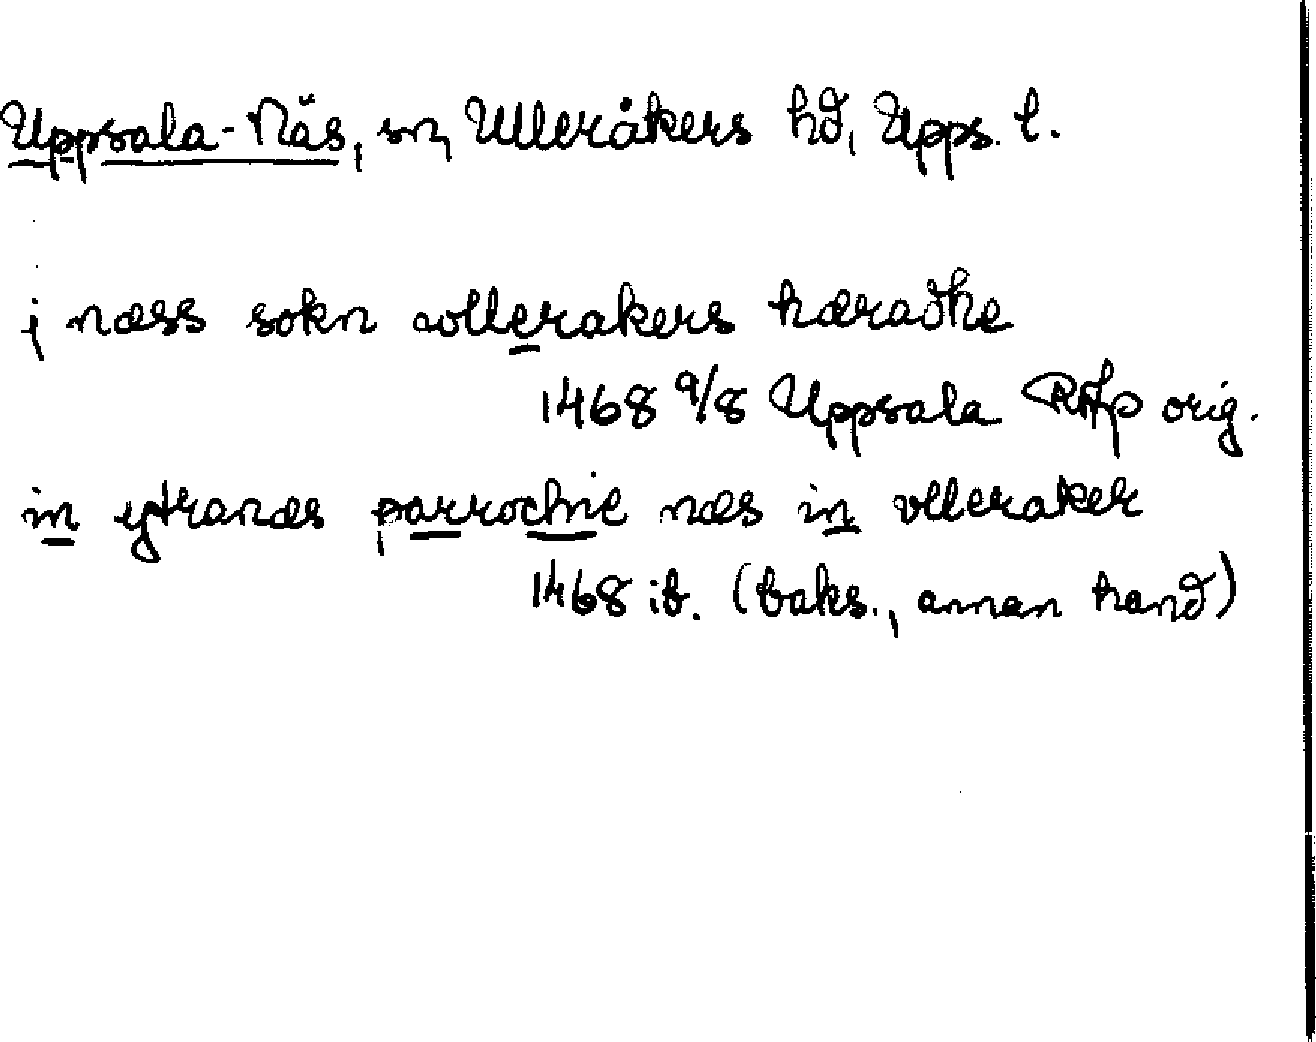 Uppsala-Näs, sn, Ulleråkers hd, Upps. l.
j næss sokn wllerakers hæradhe
1468 9/8 Uppsala RAp orig.
in ytranæs parrochie næs in vlleraker
1468 ib. (baks., annan hand)